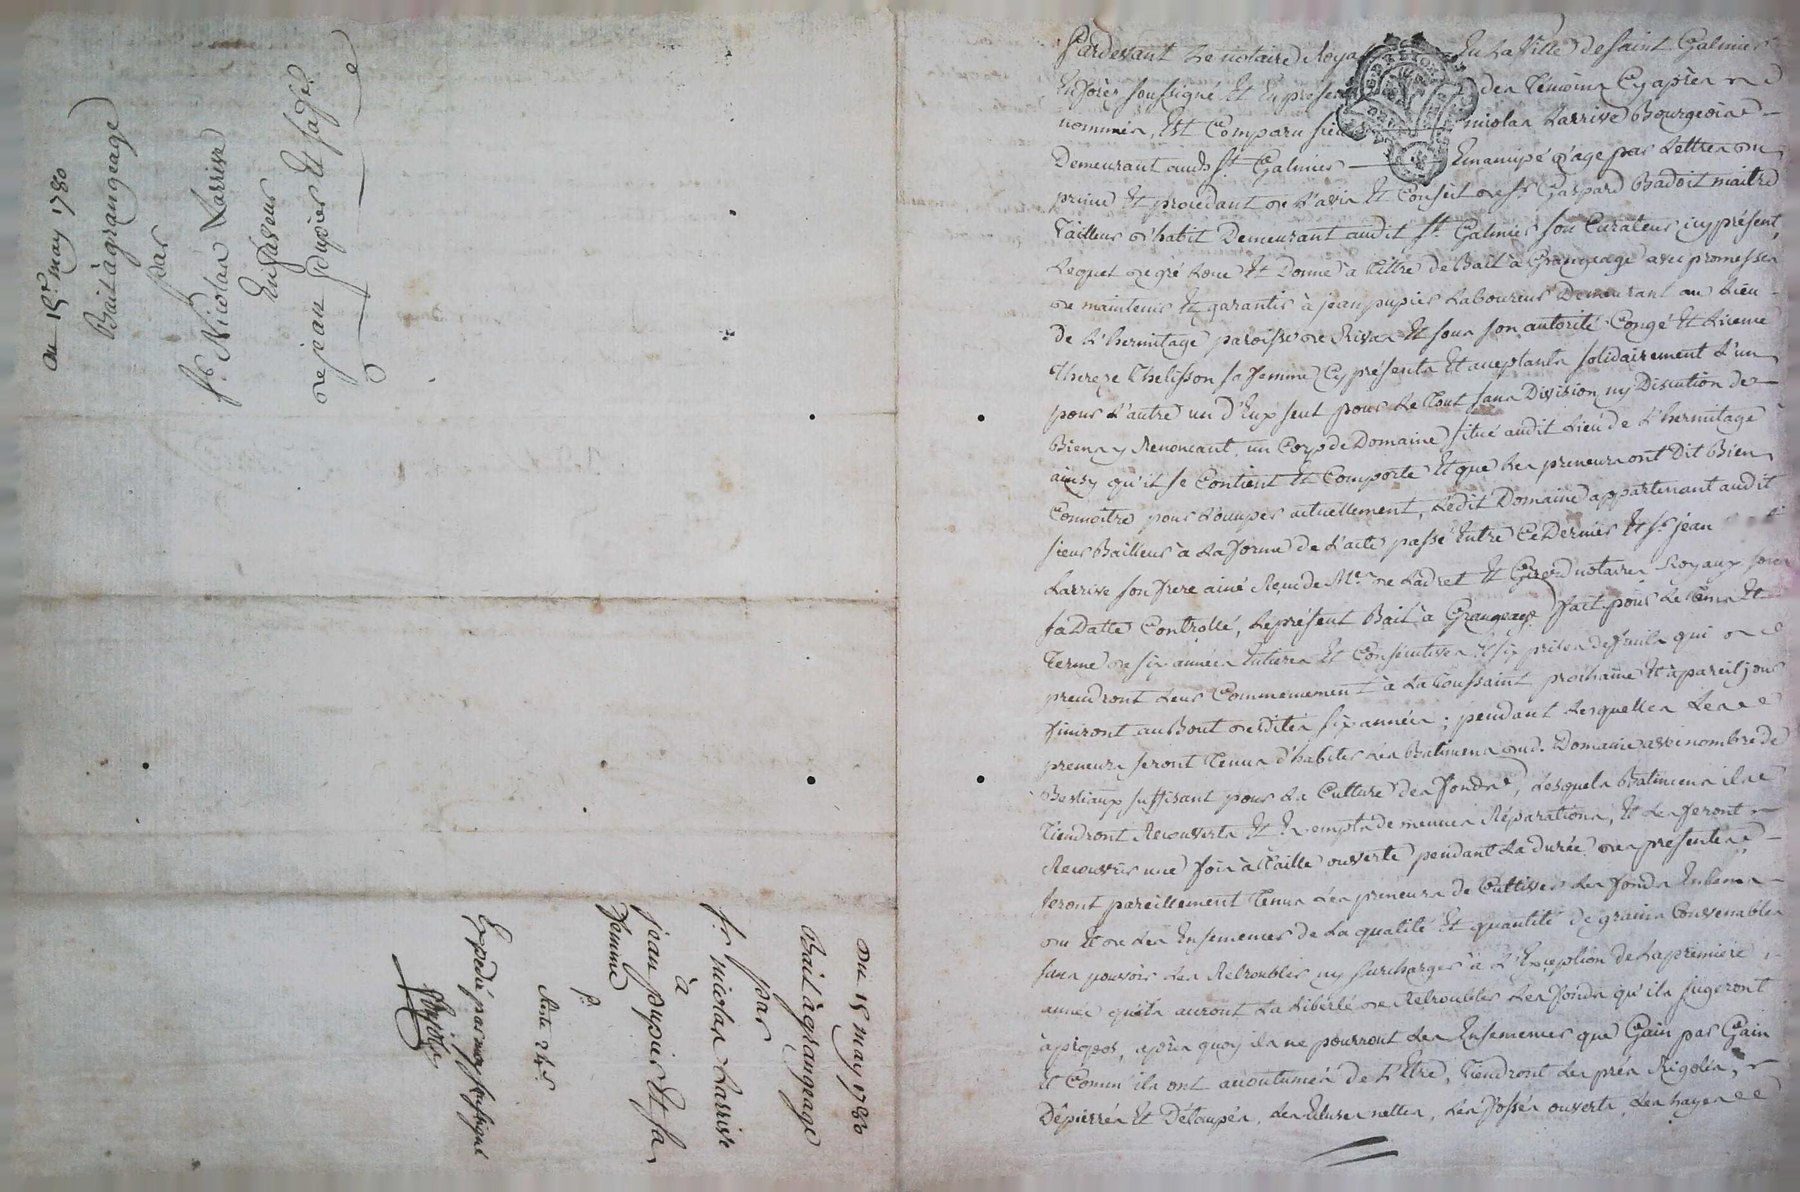 Du 15e may 1780
Bail à grangeage
par
Sr. Nicolas Larrive
En faveur
de jean pupier Et sa fe
Du 15 may 1780
Bail à grangeage
par
Sr nicolas Larrive
à
jean pupier Et sa
femme
Expedié par moy soussigné
Pardevant Le notaire Royal En La Ville de saint Galmier
En forez soussigné Et En presence des Temoins Cy après
nommés, Est Comparu sieur nicolas Larrive Bourgeois
Demeurant aud. St. Galmier Emancipé d'age par Lettres du
prince Et procedant de L'avis Et Conseil de Sr Gaspard Badoit maitre
Tailleur d'habit Demeurant audit St. Galmier son Curateur icy présent,
Lequel de gré Loue Et Donne à Tittre de Bail à Grangeage avec promesses
de maintenir Et garantir à jean pupier Laboureur Demeurant au Lieu
de L'hermitage paroisse de Rivas Et sous son autorité Congé Et Licence
Thereze Thelisson sa femme Cy présents Et acceptants solidairement L'un
pour L'autre un d'Eux seul pour Le Tout sans Division ny Discution de
Biens y Renoncant, un Corps de Domaine situé audit Lieu de L'hermitage
ainsy qu'il se Contient Et Comporte Et que Les preneurs ont Dit Bien
Connoitre pour L'occuper actuellement, Ledit Domaine appartenant audit
sieur Bailleur à La forme de L'acte passé Entre Ce Dernier Et Sr jean
Larrive son frere ainé Reçu de Me. de Ladret Et notaires Royaux sous
sa Datte Controllé, Le présent Bail à Grangeage fait pour Le Tems Et
Terme de six années Entieres Et Consécutives Et six prises de fruits qui
prendront Leur Commencement à La Toussaint prochaine Et à pareil jour
finiront au Bout desdites six années ; pendant Lesquelles Les
preneurs seront Tenus d'habiter Les Batimens dud. Domaine avec nombre de
Bestiaux suffisant pour La Culture des fonds, Lesquels Batimens ils
Tiendront Recouverts Et Exempts de menues Réparations, Et Les feront
Recouvrir une fois à Taille ouverte pendant La durée des présentes
seront pareillement Tenus Les preneurs de Cultiver Les fonds En bons
Et de Les Ensemencer de La qualité Et quantité de grains Convenables
sans pouvoir Les Retroubler ny surcharger à L'Exception de La premiere
année qu'ils auront La Liberté de Retroubler Les fonds qu'ils jugeront
àpropos, après quoy ils ne pourront Les Ensemencer que Gain par Gain
Et Comm'ils ont accoutumés de L'Etre, Tiendront Les prés Rigolés,
Dépierrés Et Détaupés, Les Ecluses nettes, Les fossés ouverts, Les hayes